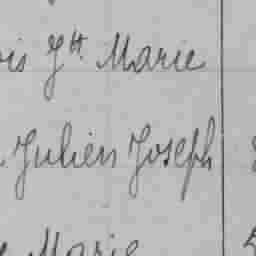 Jh Marie
Julien Joseph
Marie